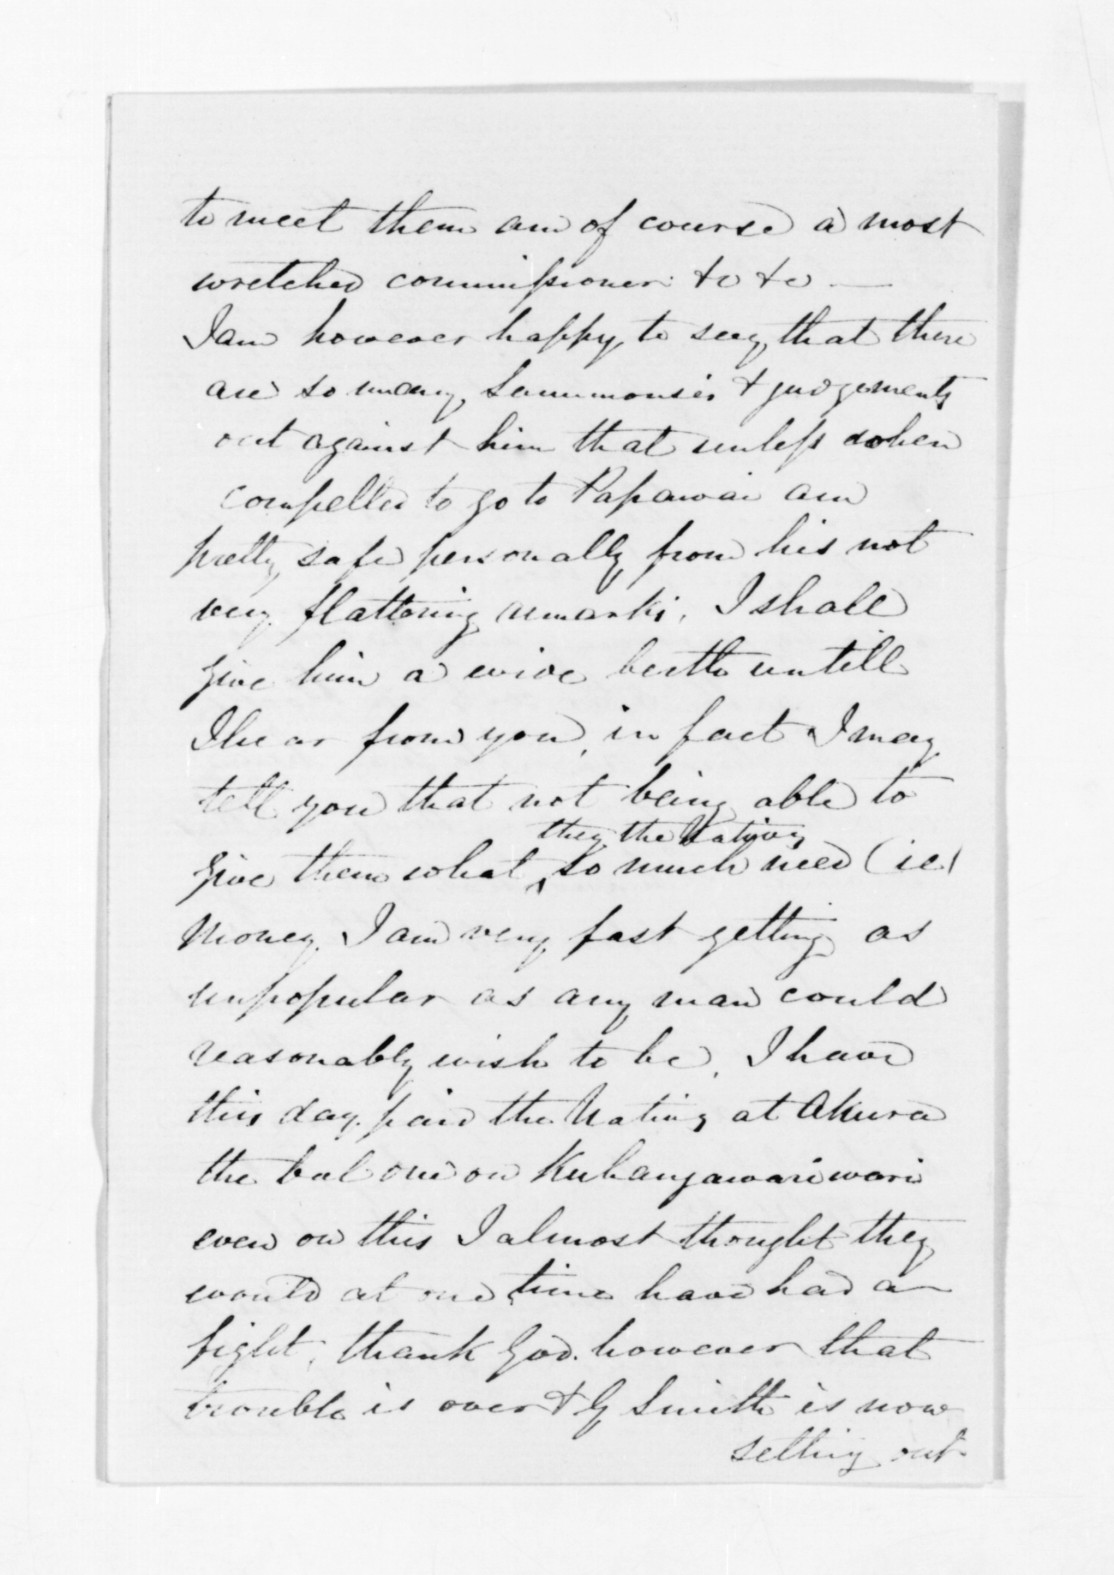 to meet them am of course a most
wretched commissioner &c &c —
I am however happy to say, that there
are so many Summonses & judgements
out against him that unless when
compelled to go to Papawai am
pretty safe personally from his not
very flattering remarks, I shall
give him a wide berth untill
I hear from you, in fact I may
tell you that not being able to
they the Natives
give them what so much need (ie)
money, I am very fast getting as
unpopular as any man could
reasonably wish to be. I have
this day paid the Natives at Akura
the bal due on
even on this I almost thought they
would at one time have had a
fight; thank God however that
trouble is over & G Smith is now
setting out